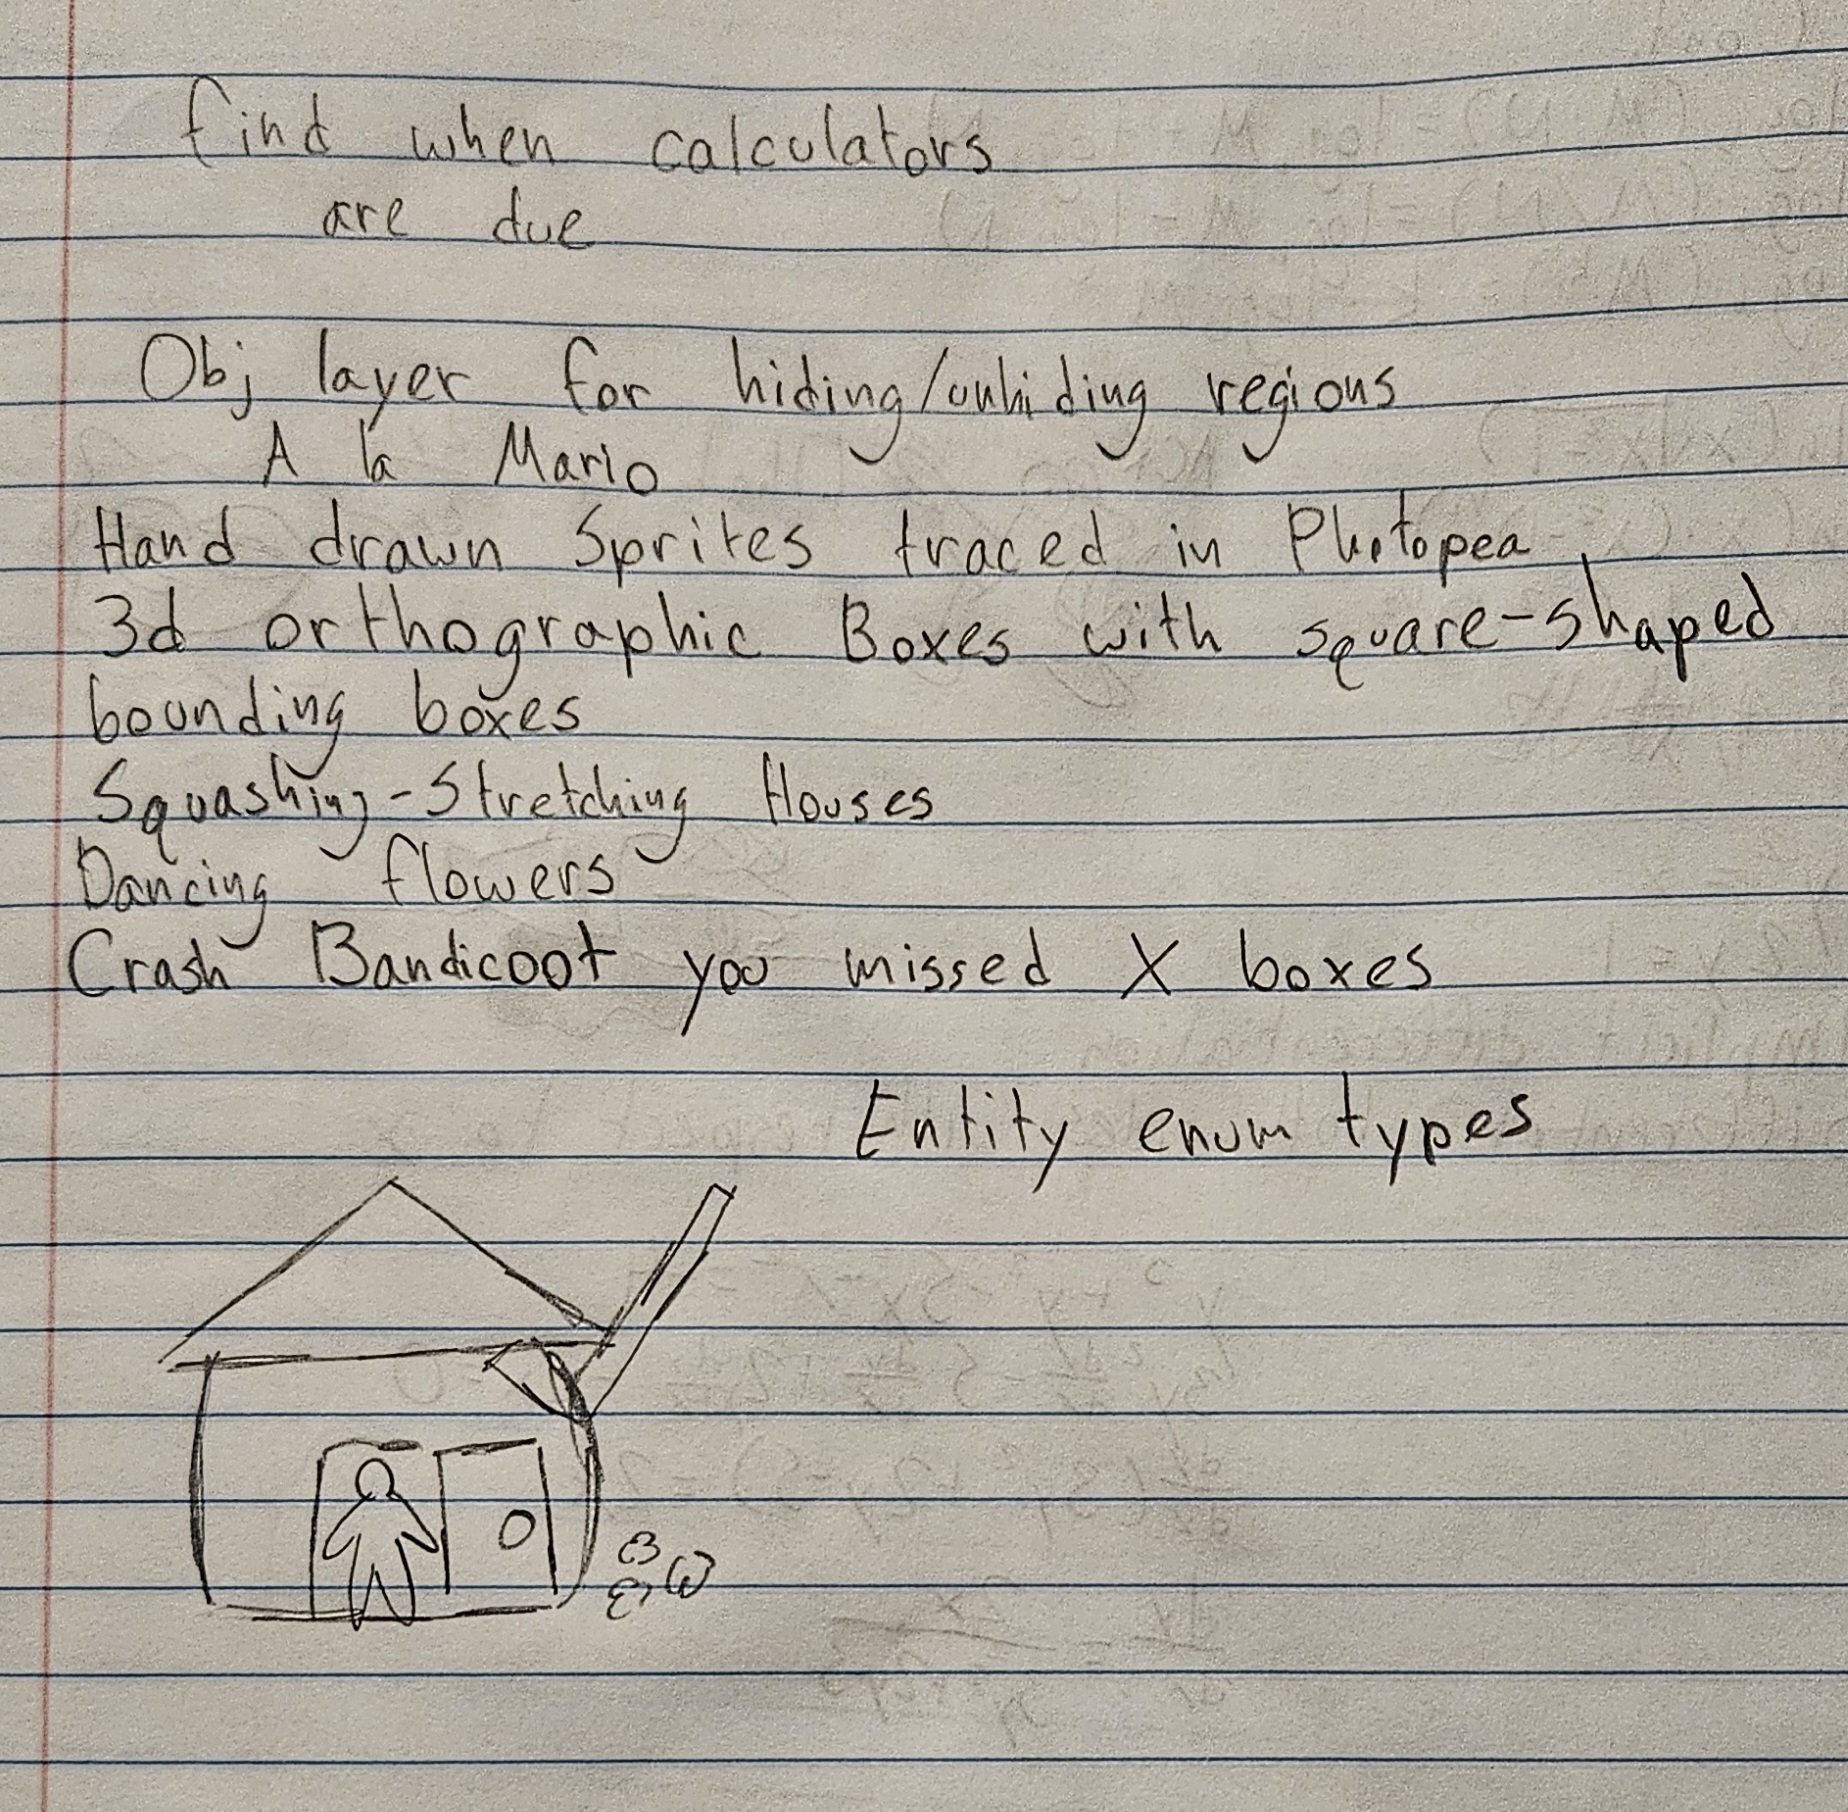 find when calculators
are due
Obj layer for hiding/unhiding regions
A la Mario
Hand drawn Sprites traced in Photopea
3d orthographic Boxes with square-shaped
bounding boxes
Squashing-Stretching Houses
Dancing flowers
Crash Bandicoot you missed X boxes
Entity enum types